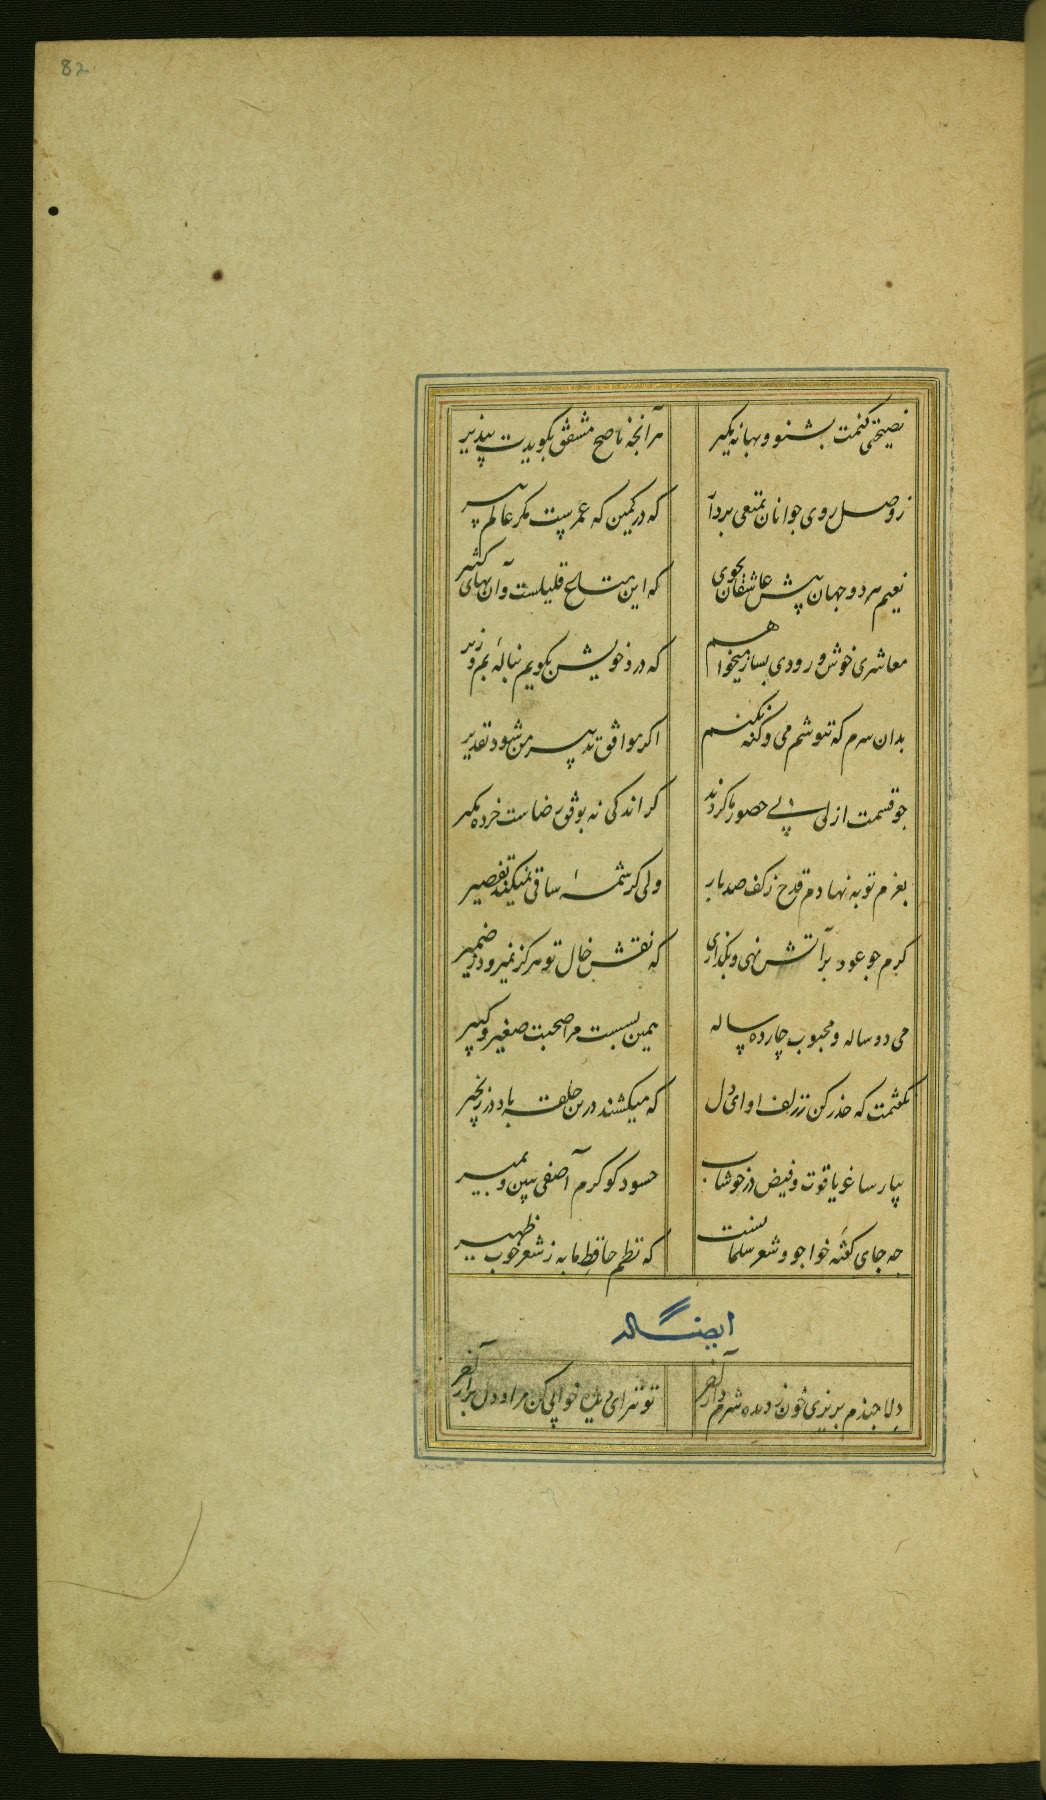 82
نصیحتی کنمت بشنو و بهانه مگیر هر آنچه ناصح مشفق بگویدت بپذیر
ز وصل روی جوانان تمتعی بردار که در کمین که عمرست مکر عالم پیر
نعیم هر دو جهان پیش عاشقان بجوی که این متاع قلیلست و آن بهای کثیر
معاشری خوش و رودی بساز میخواهم که درد خویش بگویم بنالهٔ بم و زیر
بدان سرم که ننوشم می و گنه نکنم اگر موافق تدبیر من شود تقدیر
چو قسمت ازلی بی حضور ما کردند گر اندکی نه بوفق رضاست خرده مگیر
بعزم توبه نهادم قدح ز کف صد بار ولی کرشمهٔ ساقی نمیکند تقصیر
گرم چو عود بر آتش نهی و بگذاری که نقش خال تو هرگز نمیرود ز ضمیر
می دو ساله و محبوب چارده ساله همین بسست مرا صحبت صغیر و کبیر
نگفتمت که حذر کن ز زلف او ای دل که میکشند درین حلقه باد در زنجیر
بیار ساغر یاقوت و فیض در خوشاب حسود گو کرم آصفی ببین و بمیر
چه جای گفتهٔ خواجو و شعر سلمانست که نظم حافظ ما به ز شعر خوب ظهیر
ایضاله
دلا چندم بریزی خون ز دیده شرم دار آخر تو نیز ای دیده خوابی کن مراد دل برآر آخر